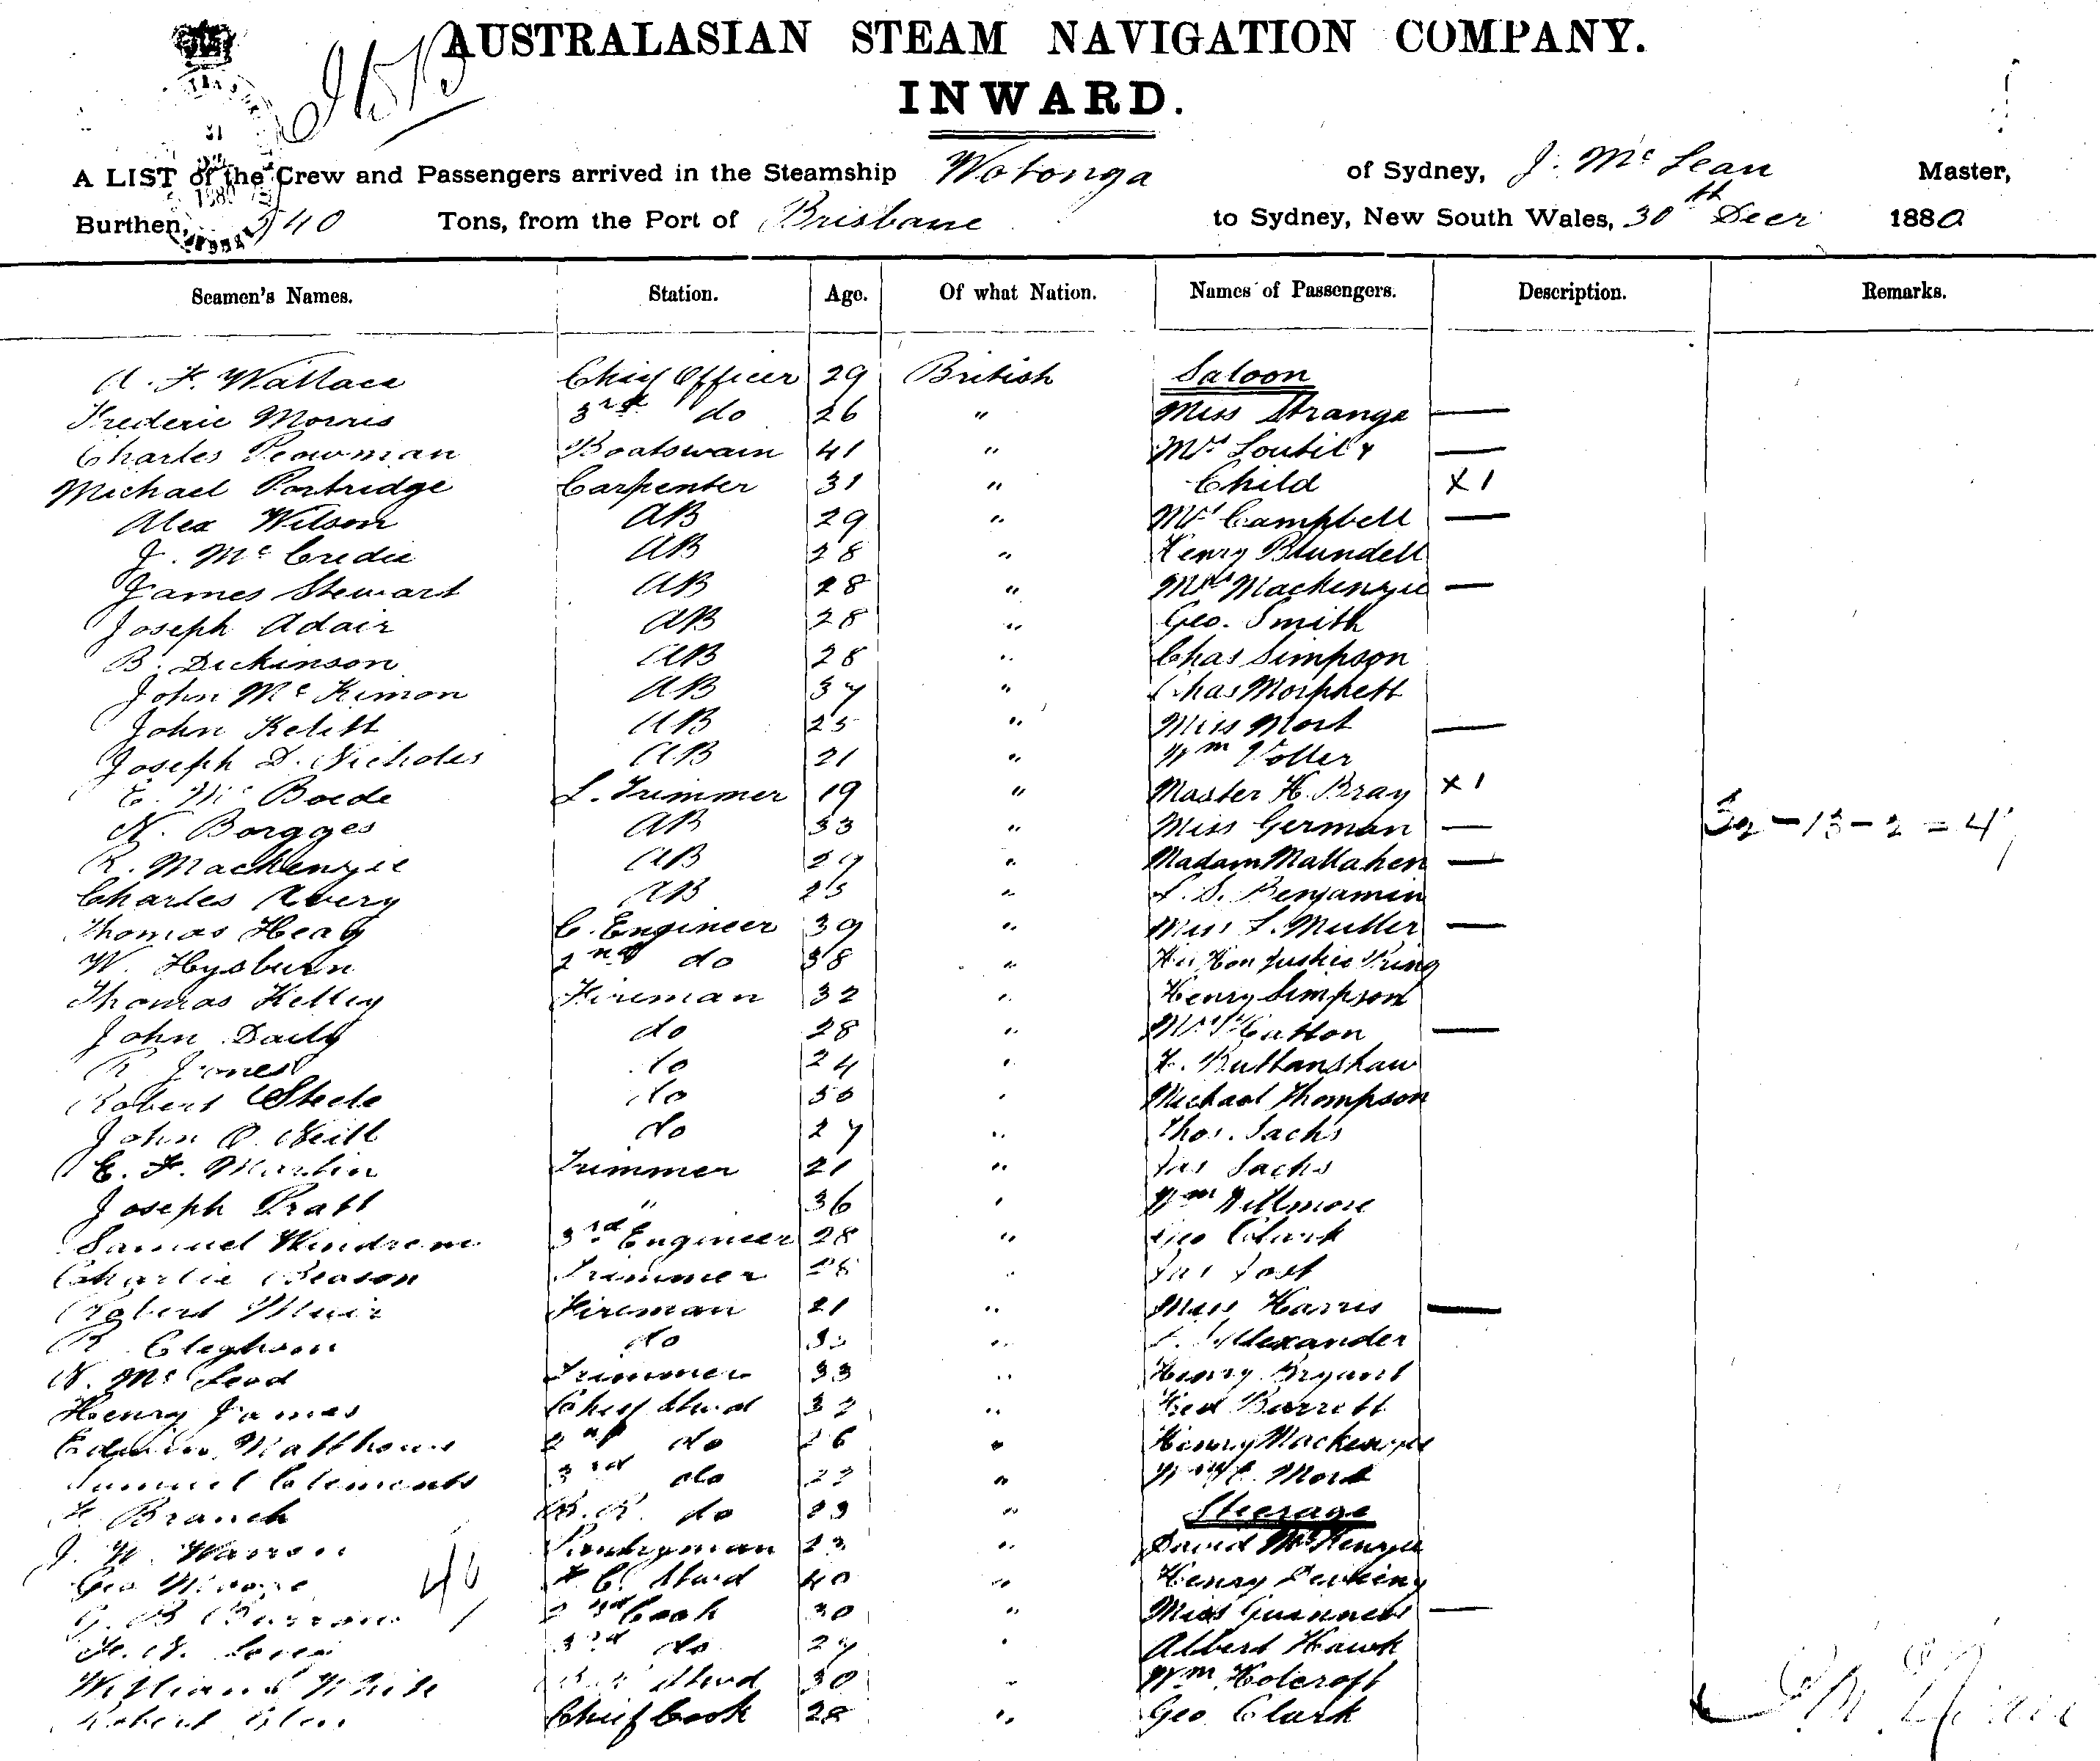 AUSTRALASIAN STEAM NAVIGATION COMPANY.
INWARD.
A LIST of the Crew and Passengers arrived in the Steamship Wotonga of Sydney, J. Mc Lean Master,
Burthen, 540 Tons, from the Port of Brisbane to Sydney, New South Wales, 30th Decr 1880
Seamen's Names. Station. Age. Of what Nation. Names of Passengers. Description. Remarks.
A. F. Wallace Chief Officer 29 British Saloon
Frederic Morris 3rd do 26 " Miss Strange —
Charles Plowman Boatswain 41 " Mrs Loutil &
Michael Portridge Carpenter 31 " Child X 1
Alex Wilson AB 29 " Mrs Campbell —
J. Mc Credie AB 28 " Henry Blundell
James Stewart AB 28 " Mrs Mackenzie —
Joseph Adair AB 28 " Geo. Smith
B. Dickinson AB 28 " Chas Simpson
John Mc Kimon AB 37 " Chas Morphett
John Kelitt AB 25 " Miss Mort —
Joseph D. Nicholes AB 21 " Wm Voller
E. Mc Boede L. Trimmer 19 " Master H. Bray X 1
N. Borgges AB 33 " Miss German —
R. Mackenzie AB 29 " Madam Mallahen —
Charles Avery AB 25 " S. Benjamin
Thomas Heag C. Engineer 39 " Miss L. Muller —
W. Hysburn 2nd do 38 " His Hon Justice Pring
Thomas Kelley Fireman 32 " Henry Simpson
John Daily do 28 " Mrs Catton —
R. Jones do 24 " H. Buttanshaw
Robert Steele do 30 " Michael Thompson
John O. Neill do 27 " Thos. Sachs
E. F. Martin Trimmer 21 " Jas Sachs
Joseph Pratt " 36 " Wm Willmore
Samuel Windrem 3rd Engineer 28 " Geo Clark
Charlie Beason Trimmer 28 " Jas Jost
Robert Muir Fireman 21 " Miss Harris —
R Cleghorn do " Alexander
N. Mc Leod Trimmer 33 " Henry Bryant
Henry James Chief Stwd 32 " Fred Barrett
Edwin Matthews 2nd do 26 " Henry Mackenzie
Samuel Clements 3rd do 22 " Mort
F Branch do 23 " Steerage
J. W. Warren Pantryman 23 " David McKenzie
Geo Stwd 40 " Henry
G. B. Barrow 2nd Cook 30 " Miss Guinness —
3rd do 27 " Albert Hawk
William White Stwd 30 " Wm Holcroft
Robert Glen Chief Cook 28 " Geo Clark